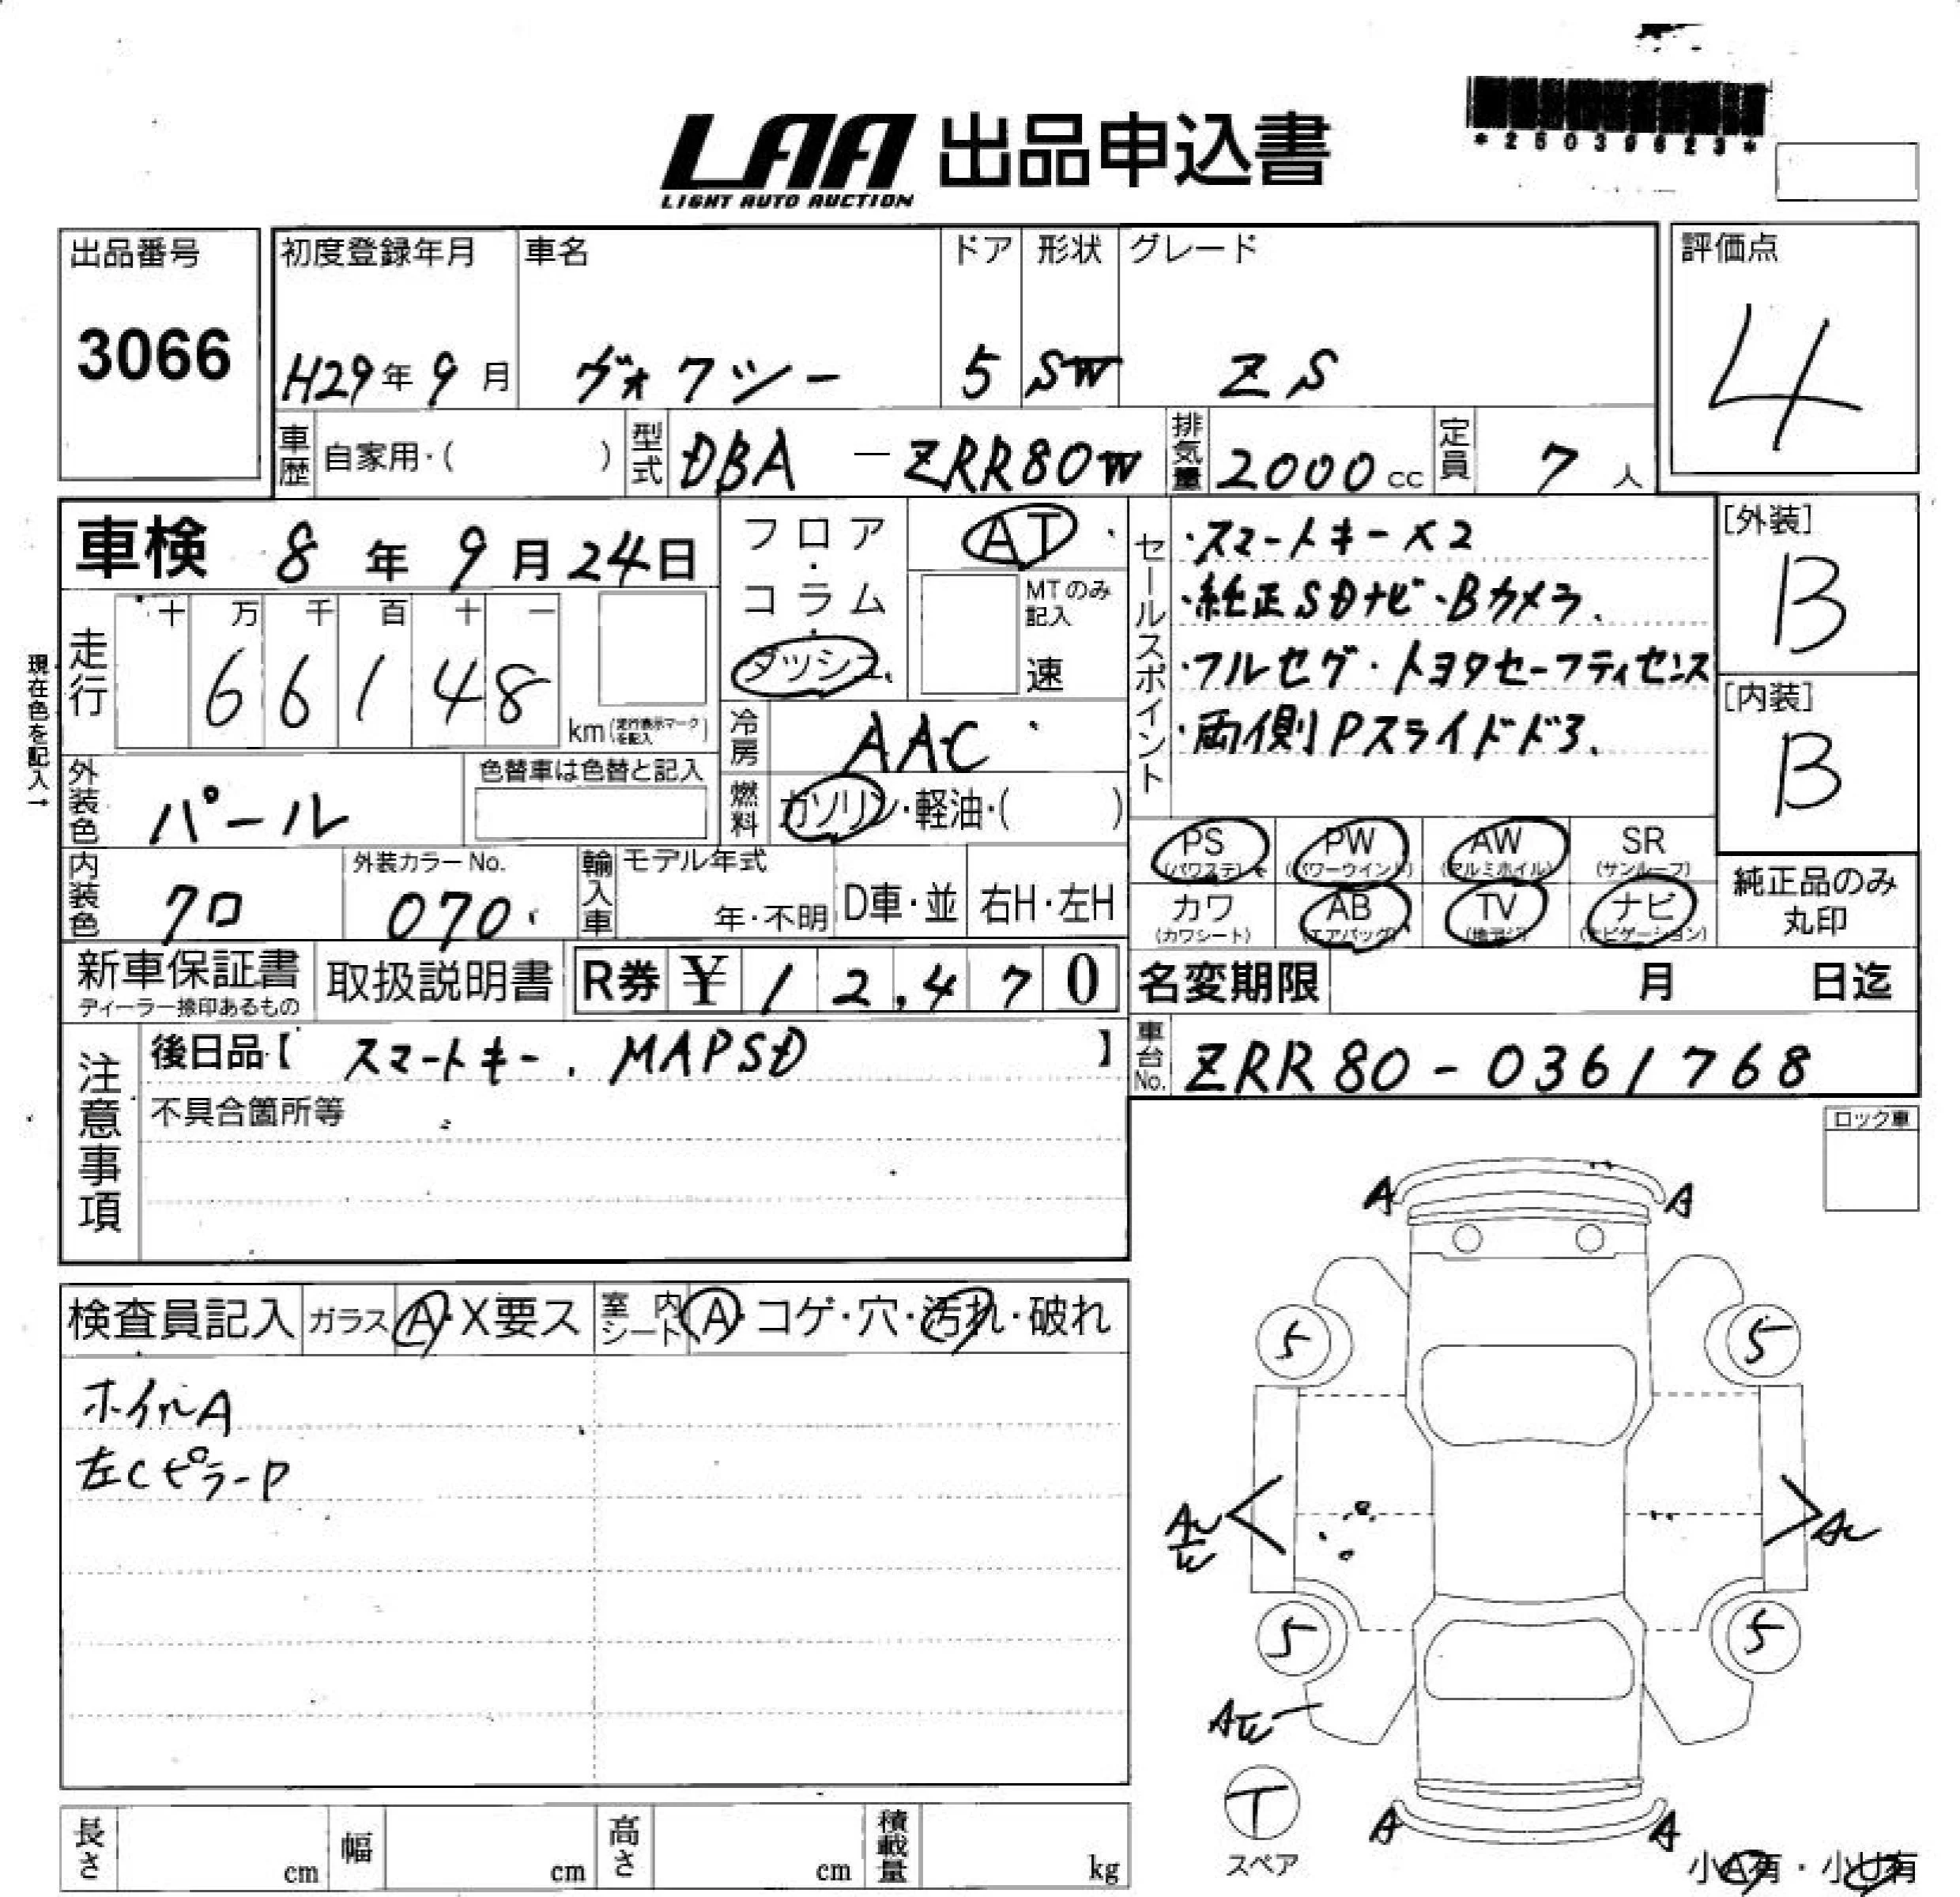 LAA 出品申込書
LIGHT AUTO AUCTION
*25039623*
出品番号
3066
初度登録年月 車名 ドア 形状 グレード
H29年 9月 ヴォクシー 5 SW ZS
評価点
4
車歴 自家用・( ) 型式 DBA - ZRR80W 排気量 2000cc 定員 7人
車検 8年 9月 24日
フロア・コラム・ダッシュ
AT
MTのみ記入
速
セールスポイント
・スマートキー×2
・純正SDナビ・Bカメラ、
・フルセグ・トヨタセーフティセンス
・両側Pスライドドア、
[外装]
B
[内装]
B
現在色を記入→
走行 十 万 千 百 十 一
66148
km(走行表示マークを記入)
冷房 AAC
燃料 ガソリン・軽油・( )
外装色 パール
色替車は色替と記入
内装色 クロ
外装カラーNo.
070
輸入車 モデル年式
年・不明 D車・並 右H・左H
PS (パワステ) PW (パワーウインド) AW (アルミホイル) SR (サンルーフ)
カワ (カワシート) AB (エアバッグ) TV (地デジ) ナビ (ナビゲーション)
純正品のみ丸印
新車保証書 ディーラー捺印あるもの
取扱説明書
R券 ¥12,470
名変期限 月 日迄
注意事項
後日品【 スマートキー、MAPSD 】
車台No. ZRR80-0361768
不具合箇所等
ロック車
検査員記入 ガラス A・X要ス 室内シート A・コゲ・穴・汚れ・破れ
ホイルA
左CピラーP
A A
5 5
5 5
T
スペア
A A
小A有・小U有
長さ cm 幅 cm 高さ cm 積載量 kg